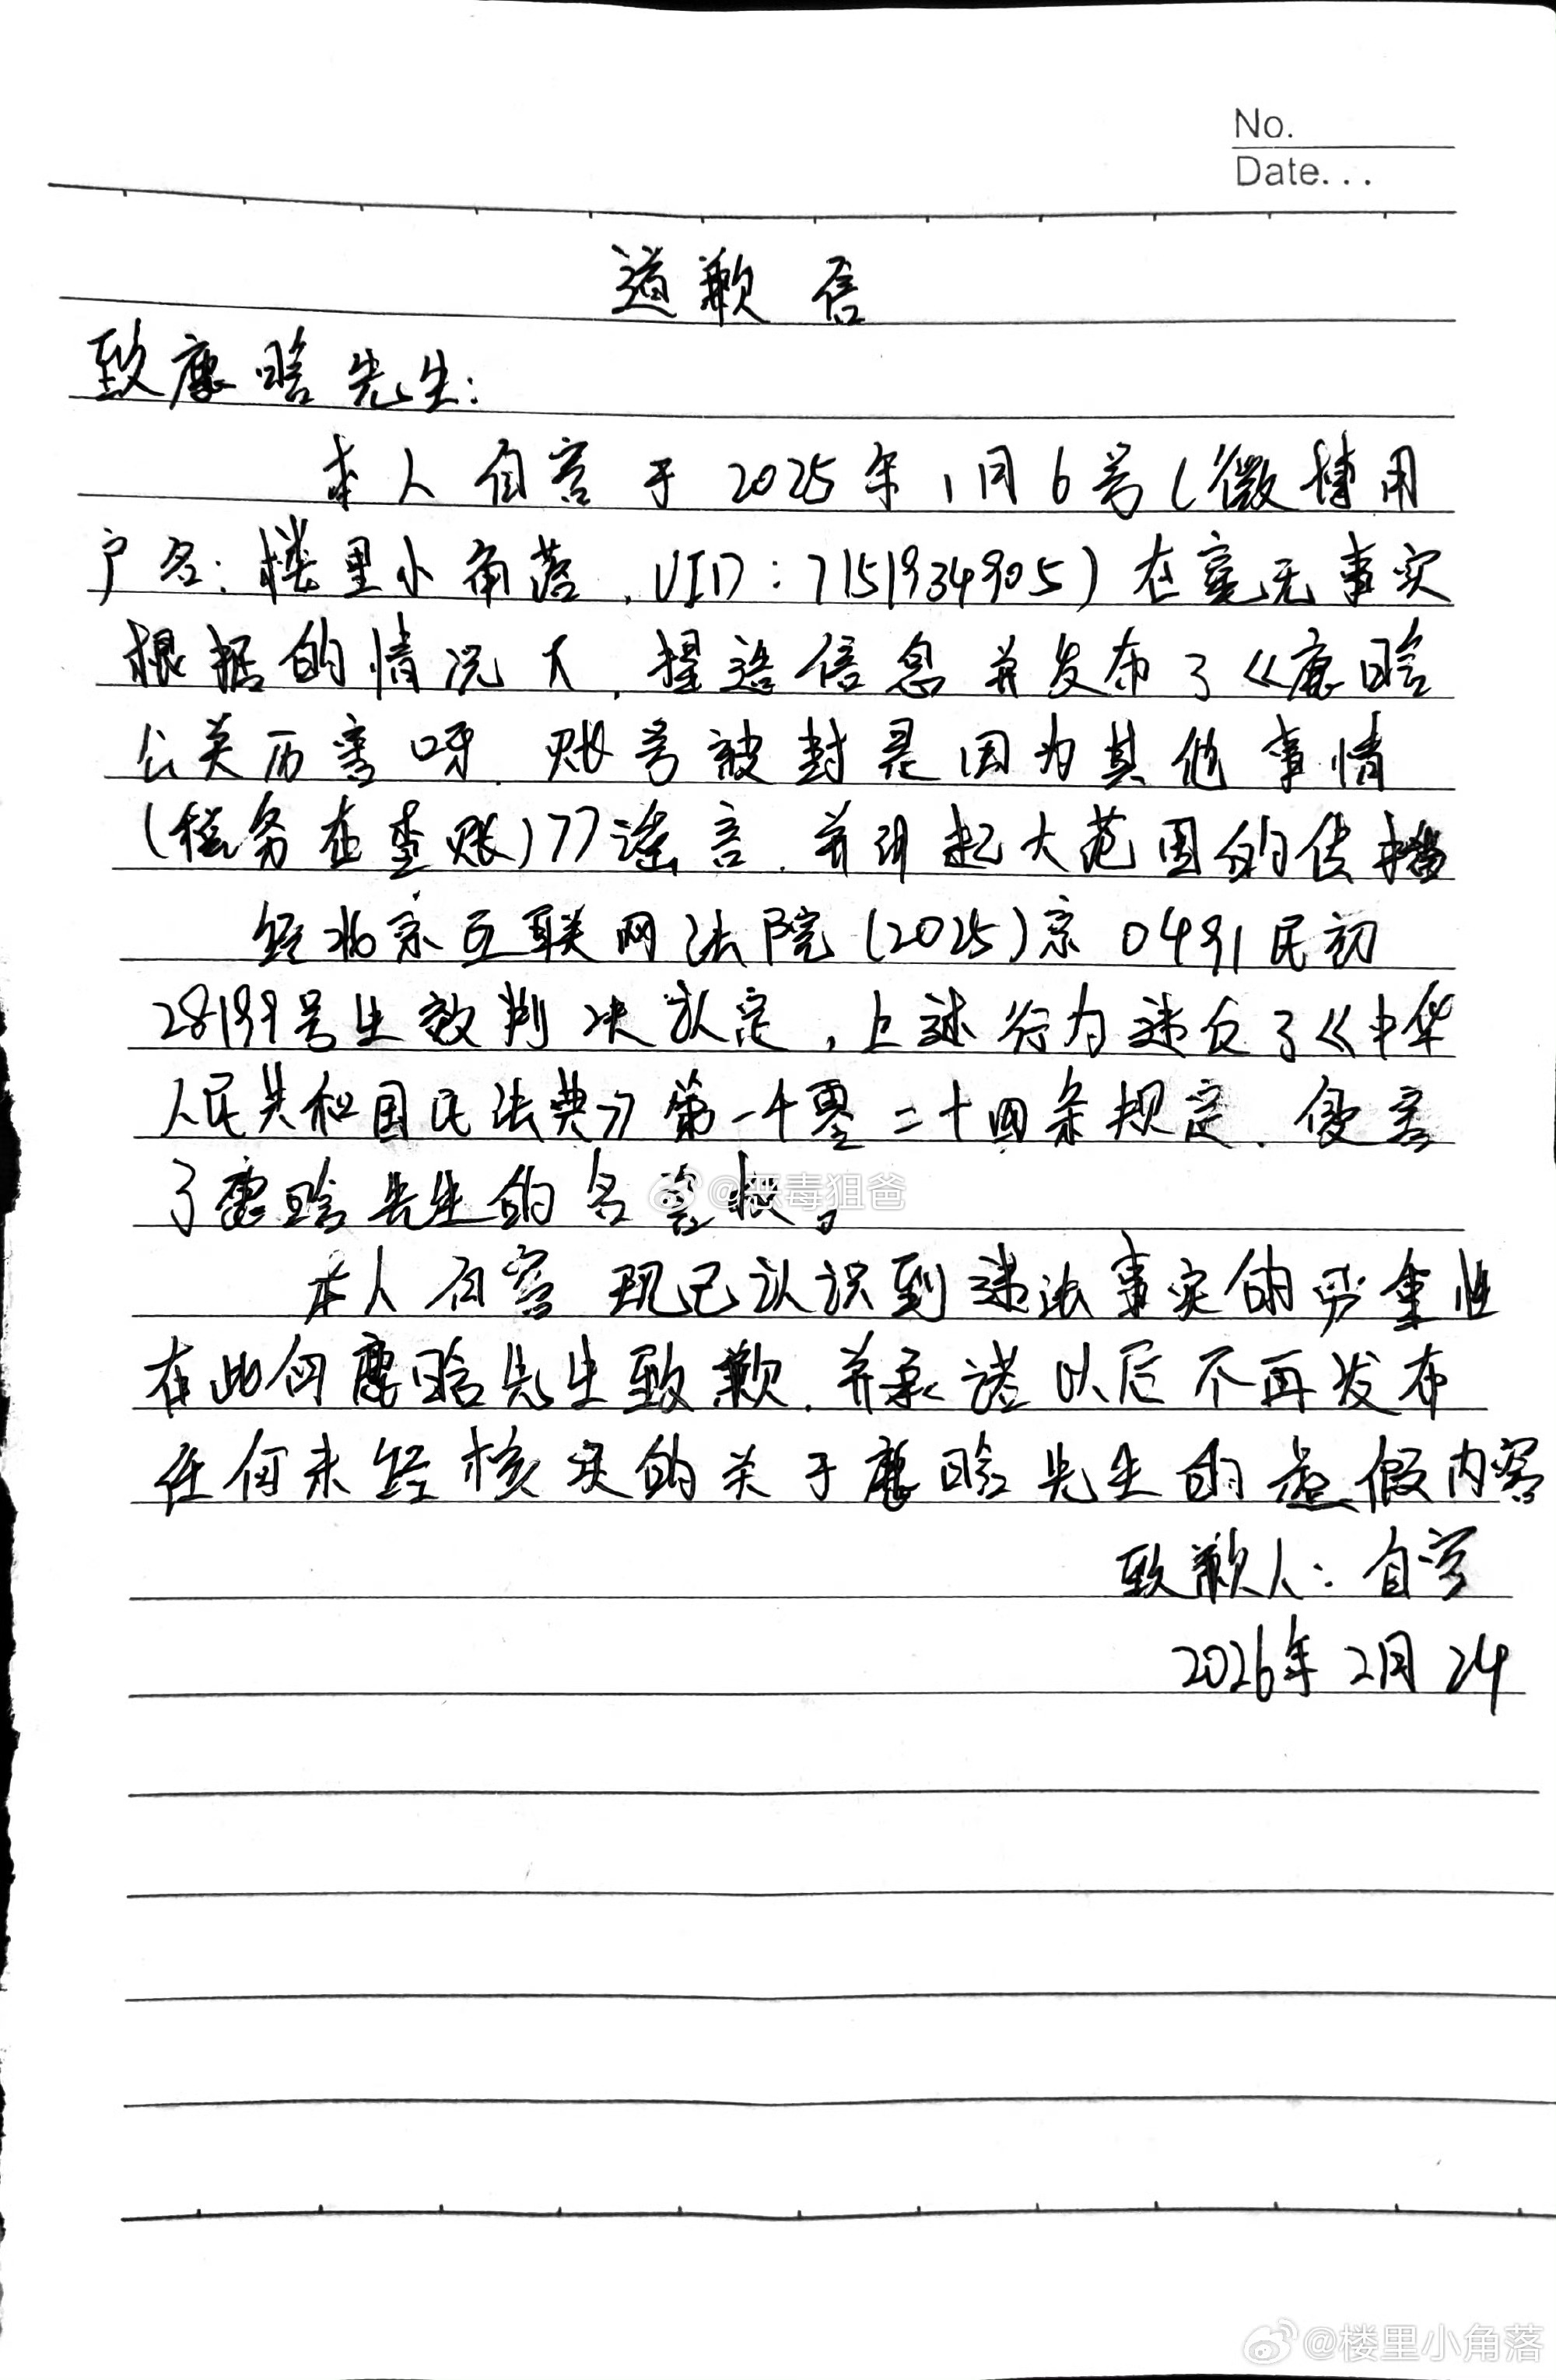 No.
Date...
道歉信
致鹿晗先生:
本人白容于2025年1月6号(微博用
户名:楼里小角落,UID:7151934905)在毫无事实
根据的情况下,捏造信息并发布了《鹿晗
公关厉害呀,账号被封是因为其他事情
(税务在查账)》谣言,并引起大范围的传播
经北京互联网法院(2025)京0491民初
28199号生效判决认定,上述行为违反了《中华
人民共和国民法典》第一千零二十四条规定,侵害
了鹿晗先生的名誉权。
@恶毒狙爸
本人 现已认识到违法事实的严重性
在此向鹿晗先生致歉,并承诺以后不再发布
任何未经核实的关于鹿晗先生的虚假内容
致歉人:
2026年2月24
@楼里小角落